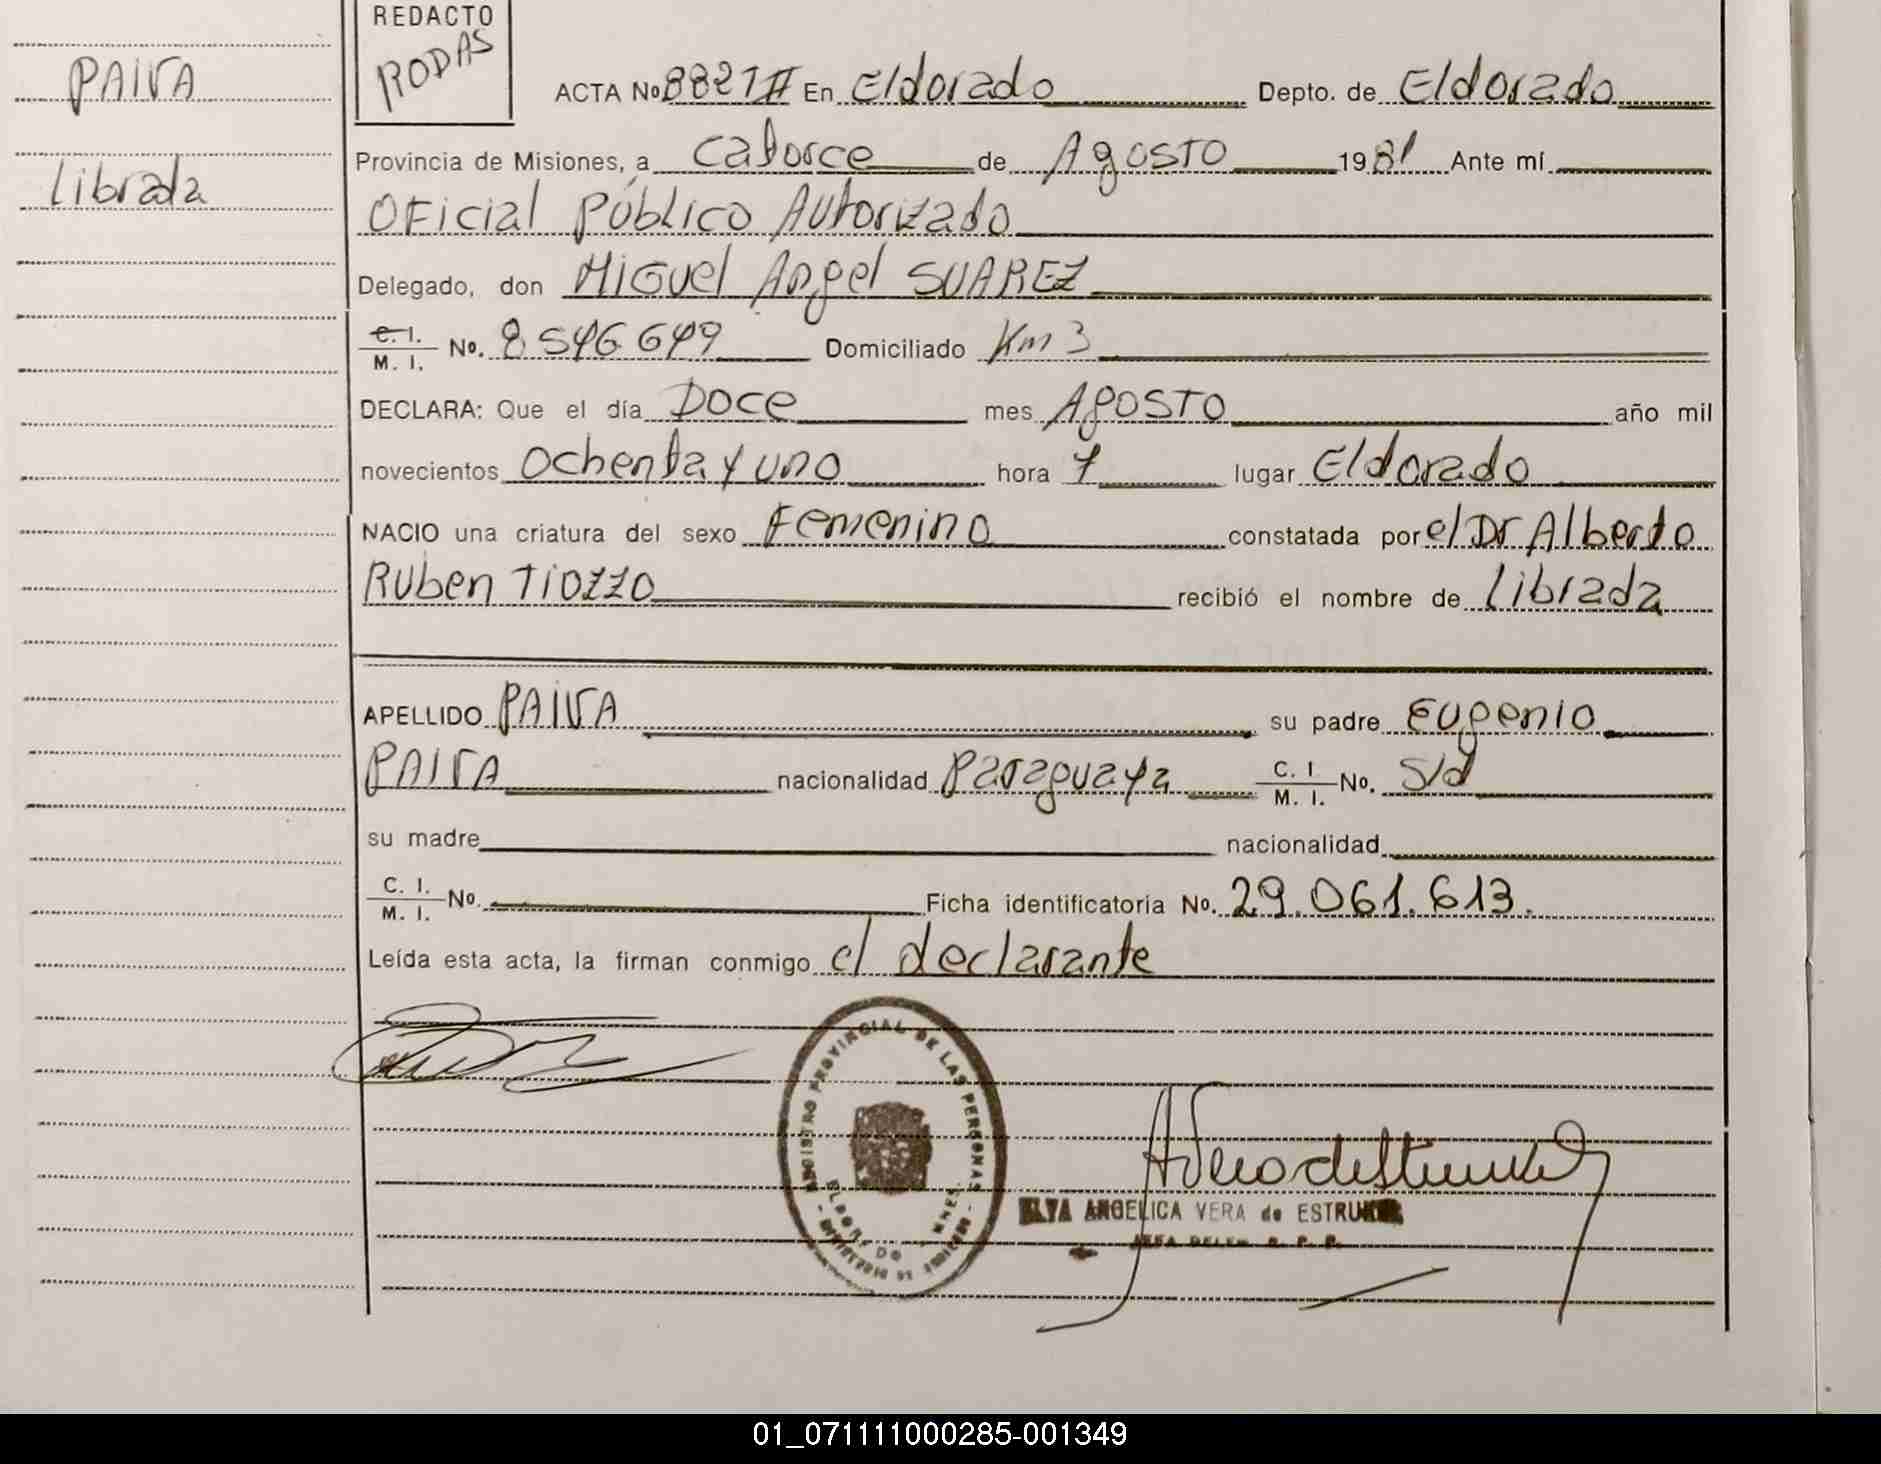 PAIVA
Librada
REDACTO
RODAS
ACTA No 8821 II En Eldorado Depto. de Eldorado
Provincia de Misiones, a Catorce de Agosto 1981 Ante mí
Oficial Público Autorizado
Delegado, don Miguel Angel SUAREZ
C. I.
M. I. No. 8546649 Domiciliado Km 3
DECLARA: Que el día Doce mes Agosto año mil
novecientos ochenta y uno hora 7 lugar Eldorado
NACIO una criatura del sexo Femenino constatada por el Dr Alberto
Ruben Tiozzo recibió el nombre de Librada
APELLIDO PAIVA su padre Eugenio
PAIVA nacionalidad Paraguaya C. I
M. I. No. S/d
su madre nacionalidad
C. I.
M. I. No. Ficha identificatoria No. 29.061.613.
Leída esta acta, la firman conmigo el declarante
REGISTRO PROVINCIAL DE LAS PERSONAS
ELDORADO
ELVA ANGELICA VERA de ESTRUBER
01_071111000285-001349